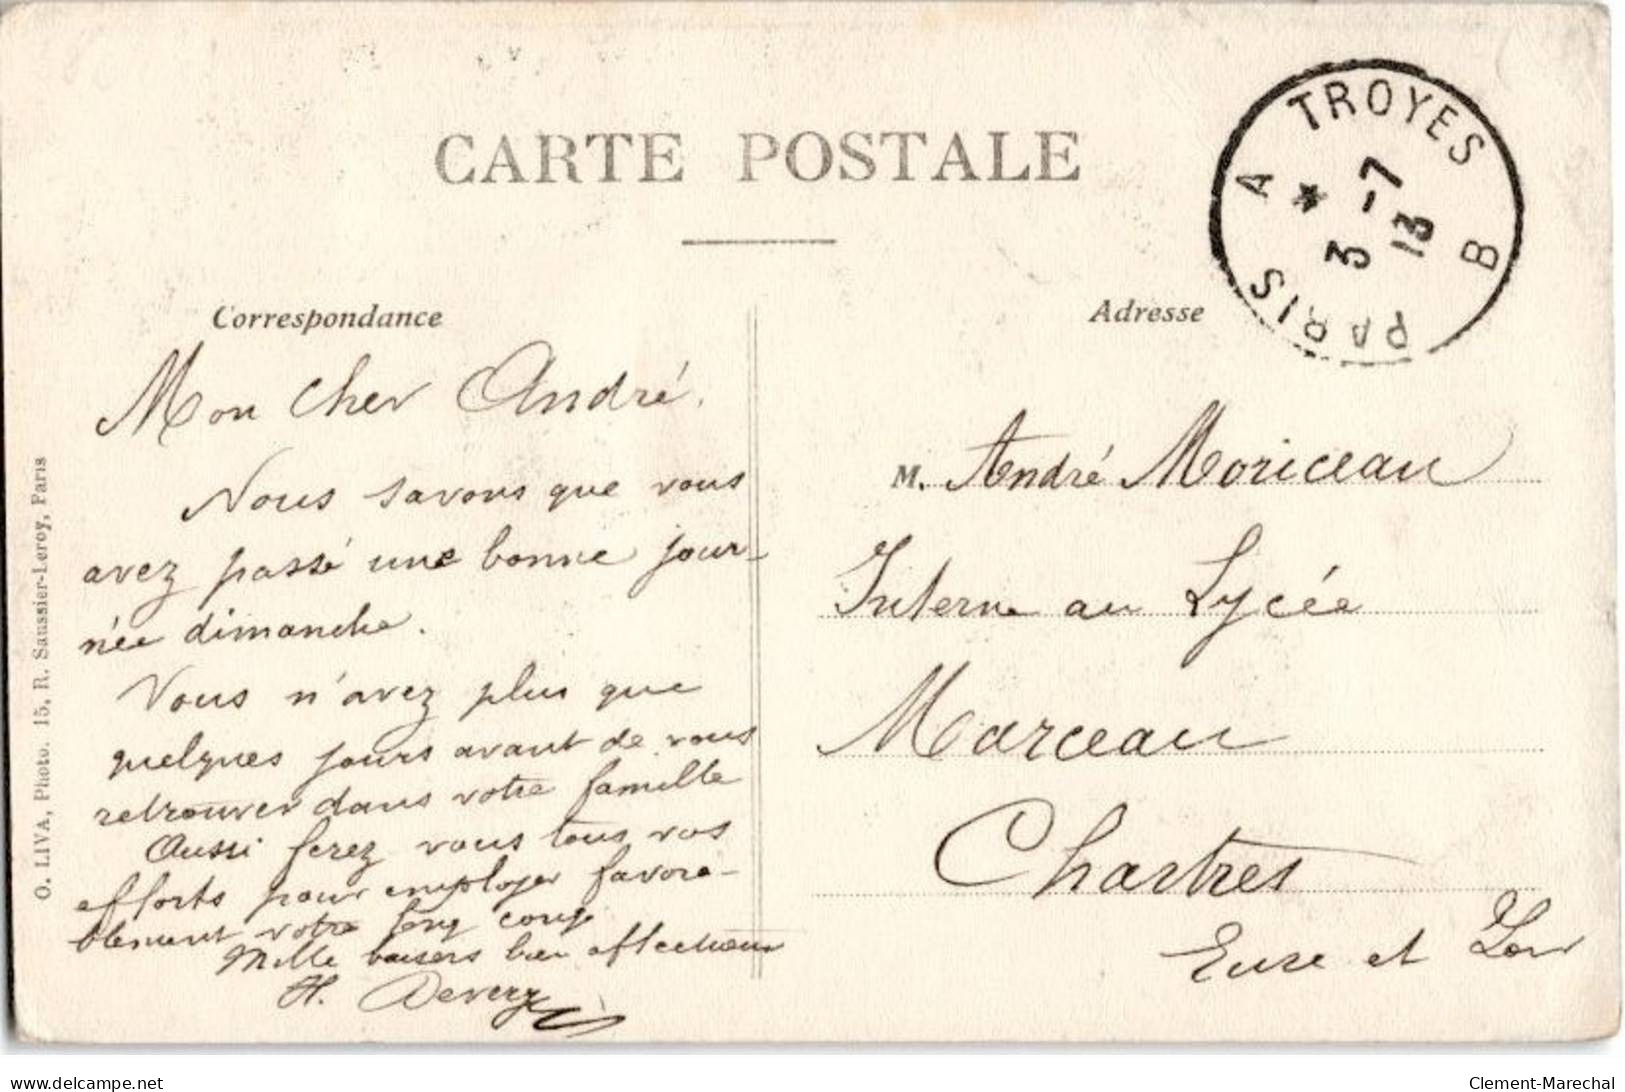 CARTE POSTALE
TROYES
A
B
PARIS
* 3 -7
13
Correspondance
Adresse
Mon cher André.
Nous savons que vous
avez passé une bonne jour-
née dimanche.
Vous n'avez plus que
quelques jours avant de vous
retrouver dans votre famille
Aussi ferez vous tous vos
efforts pour employer favora-
blement votre long congé
Mille baisers bien affectueux
H. Devery
M. André Moriceau
Interne au Lycée
Marceau
Chartres
Eure et Loir
O. LIVA, Photo. 15, R. Saussier-Leroy, Paris
delcampe.net
Clement-Marechal